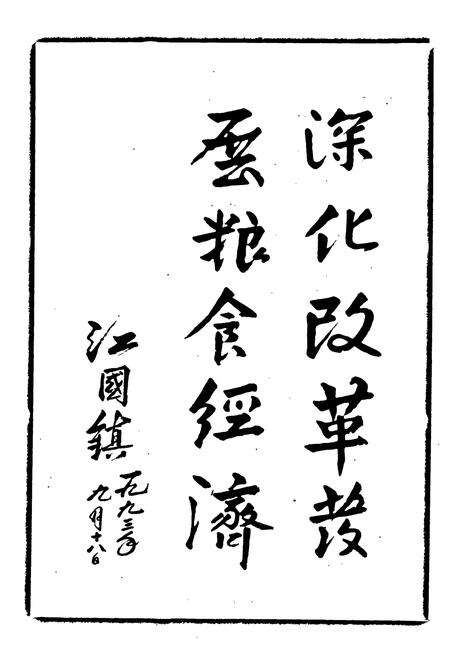 深化改革發
雲粮食經濟
江國鎮
一九九三年
九月十八日